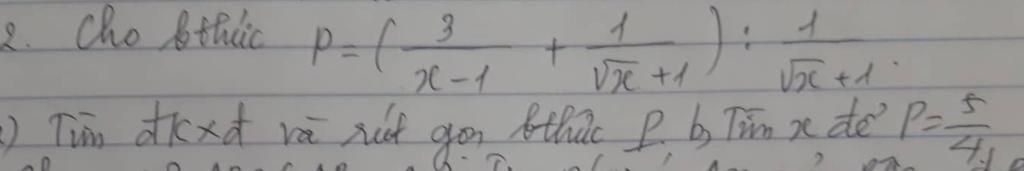 2. Cho bthức P = ( 3/(x-1) + 1/(√x+1) ) : 1/(√x+1).
) Tìm đkxđ và rút gọn bthức P. b, Tìm x để P = 5/4